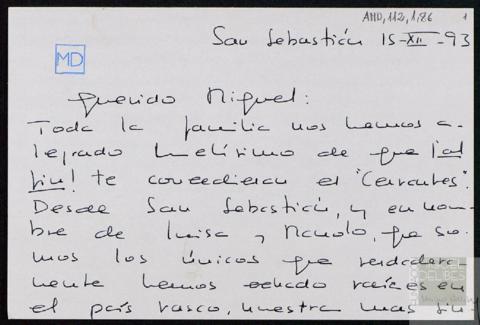 AMD,112,1,86
1
San Sebastián 15-XII-93
MD
Querido Miguel:
Toda la familia nos hemos a-
legrado muchísimo de que ¡al
fin! te concedieran el "Cervantes".
Desde San Sebastián, y en nom-
bre de Luisa y Manolo, que so-
mos los únicos que verdadera-
mente hemos echado raíces en
el país vasco, nuestra más sin-